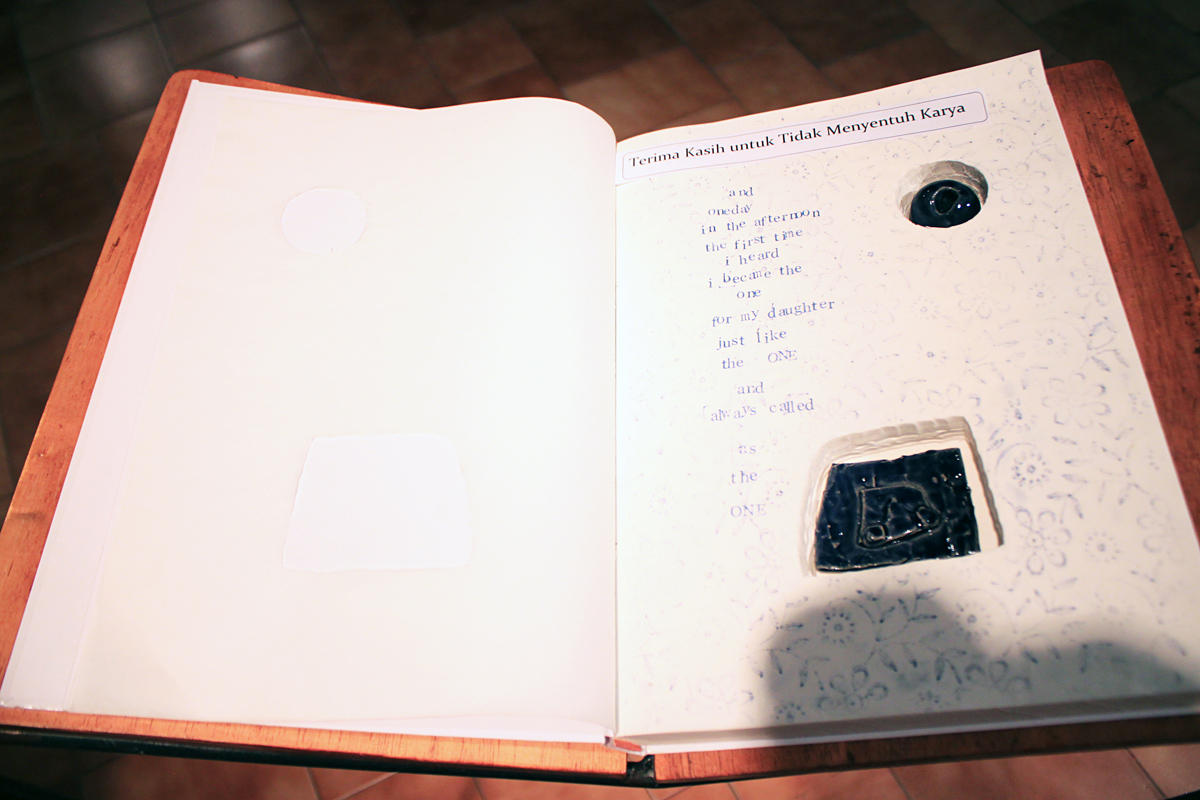 Terima Kasih untuk Tidak Menyentuh Karya
and
oneday
in the afternoon
the first time
i heard
i became the
one
for my daughter
just like
the ONE
and
always called
as
the
ONE